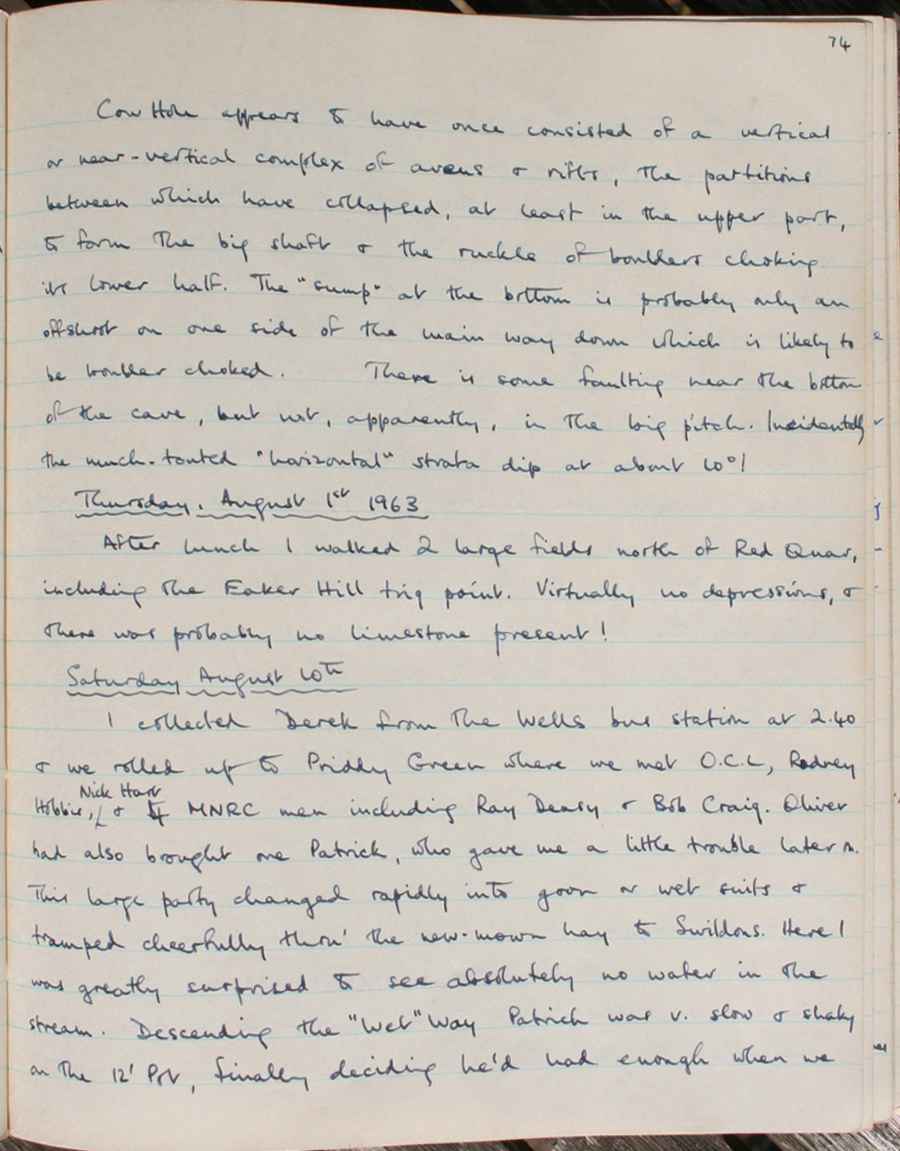 74
Cow Hole appears to have once consisted of a vertical
or near-vertical complex of avens & rifts, the partitions
between which have collapsed, at least in the upper part,
to form the big shaft & the ruckle of boulders choking
its lower half. The "sump" at the bottom is probably only an
offshoot on one side of the main way down which is likely to
be boulder choked. There is some faulting near the bottom
of the cave, but not, apparently, in the big pitch. Incidentally
the much-touted "horizontal" strata dip at about 10°!
Thursday. August 1st 1963
After lunch I walked 2 large fields north of Red Quar,
including the Eaker Hill trig point. Virtually no depressions, &
there was probably no limestone present!
Saturday August 10th
I collected Derek from the Wells bus station at 2.40
& we rolled up to Priddy Green where we met O.C.L, Rodney
Nick Hart
Hobbis, & 4 MNRC men including Ray Deasy & Bob Craig. Oliver
had also brought one Patrick, who gave me a little trouble later on.
This large party changed rapidly into goon or wet suits &
tramped cheerfully thro' the new-mown hay to Swildons. Here I
was greatly surprised to see absolutely no water in the
stream. Descending the "Wet" Way Patrick was v. slow & shaky
on the 12' Pot, finally deciding he'd had enough when we